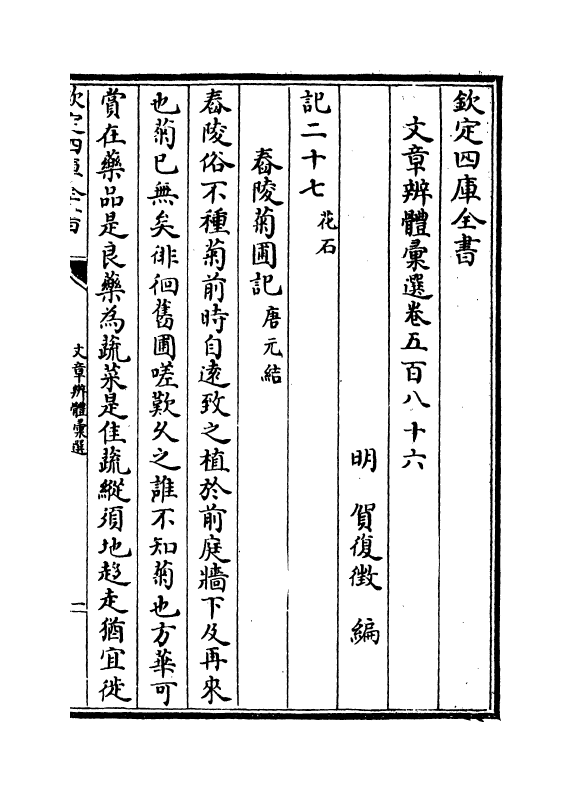 欽定四庫全書
文章辨體彙選卷五百八十六
明 賀復徵 編
記二十七 花石
舂陵菊圃記 唐元結
舂陵俗不種菊前時自逺致之植於前庭牆下及再來
也菊已無矣徘徊舊圃嗟歎久之誰不知菊也方華可
賞在藥品是良藥為蔬菜是佳蔬縱須地趨走猶宜徙
欽定四庫全書
文章辨體彙選
一